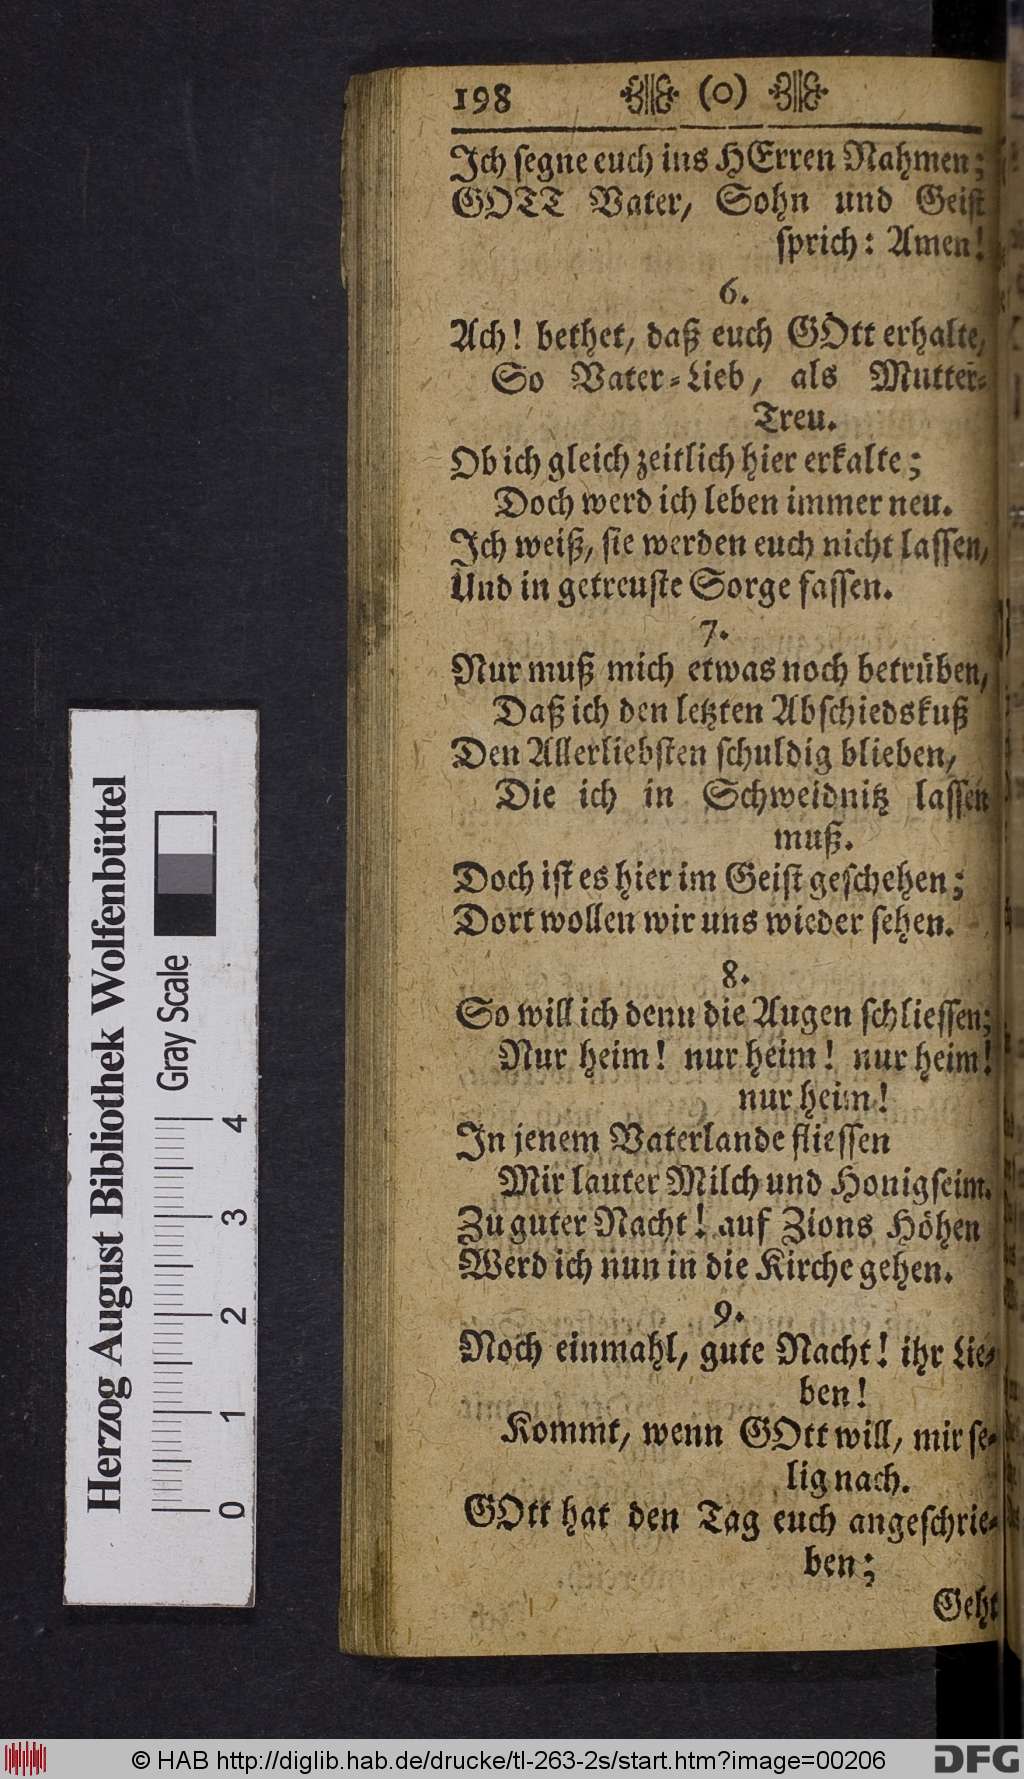 198 (o)
Ich segne euch ins HErren Nahmen;
GOTT Vater, Sohn und Geist
sprich: Amen!
6.
Ach! bethet, daß euch GOtt erhalte,
So Vater-Lieb, als Mutter-
Treu.
Ob ich gleich zeitlich hier erkalte;
Doch werd ich leben immer neu.
Ich weiß, sie werden euch nicht lassen,
Und in getreuste Sorge fassen.
7.
Nur muß mich etwas noch betrüben,
Daß ich den letzten Abschiedskuß
Den Allerliebsten schuldig blieben,
Die ich in Schweidnitz lassen
muß.
Doch ist es hier im Geist geschehen;
Dort wollen wir uns wieder sehen.
8.
So will ich denn die Augen schliessen;
Nur heim! nur heim! nur heim!
nur heim!
In jenem Vaterlande fliessen
Mir lauter Milch und Honigseim.
Zu guter Nacht! auf Zions Höhen
Werd ich nun in die Kirche gehen.
9.
Noch einmahl, gute Nacht! ihr Lie-
ben!
Kommt, wenn GOtt will, mir se-
lig nach.
GOtt hat den Tag euch angeschrie-
ben;
Geht
Herzog August Bibliothek Wolfenbüttel
Gray Scale
0 1 2 3 4
© HAB http://diglib.hab.de/drucke/tl-263-2s/start.htm?image=00206
DFG